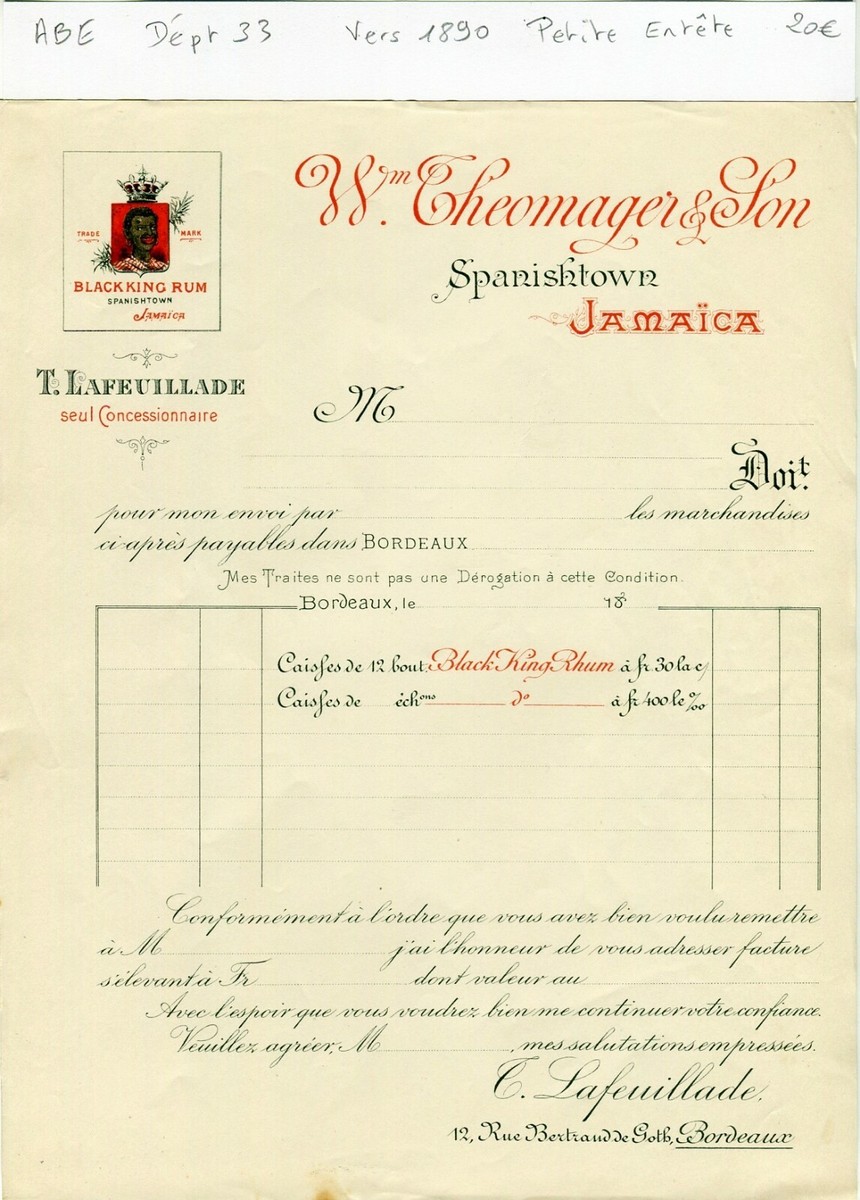 ABE Dépt 33 Vers 1890 Petite Entête 20€
Wm. Theomager & Son
Spanishtown
Jamaïca
TRADE MARK
BLACK KING RUM
SPANISHTOWN
JAMAÏCA
T. LAFEUILLADE
seul Concessionnaire
M
Doit.
pour mon envoi par les marchandises
ci-après payables dans BORDEAUX
Mes Traites ne sont pas une Dérogation à cette Condition.
Bordeaux, le 18
Caisses de 12 bout. Black King Rhum à fr 30 la c/
Caisses de échons do à fr 400 le ‰
Conformément à l'ordre que vous avez bien voulu remettre
à M j'ai l'honneur de vous adresser facture
s'élevant à Fr dont valeur au
Avec l'espoir que vous voudrez bien me continuer votre confiance.
Veuillez agréer, M , mes salutations empressées.
T. Lafeuillade.
12, Rue Bertrand de Goth, Bordeaux